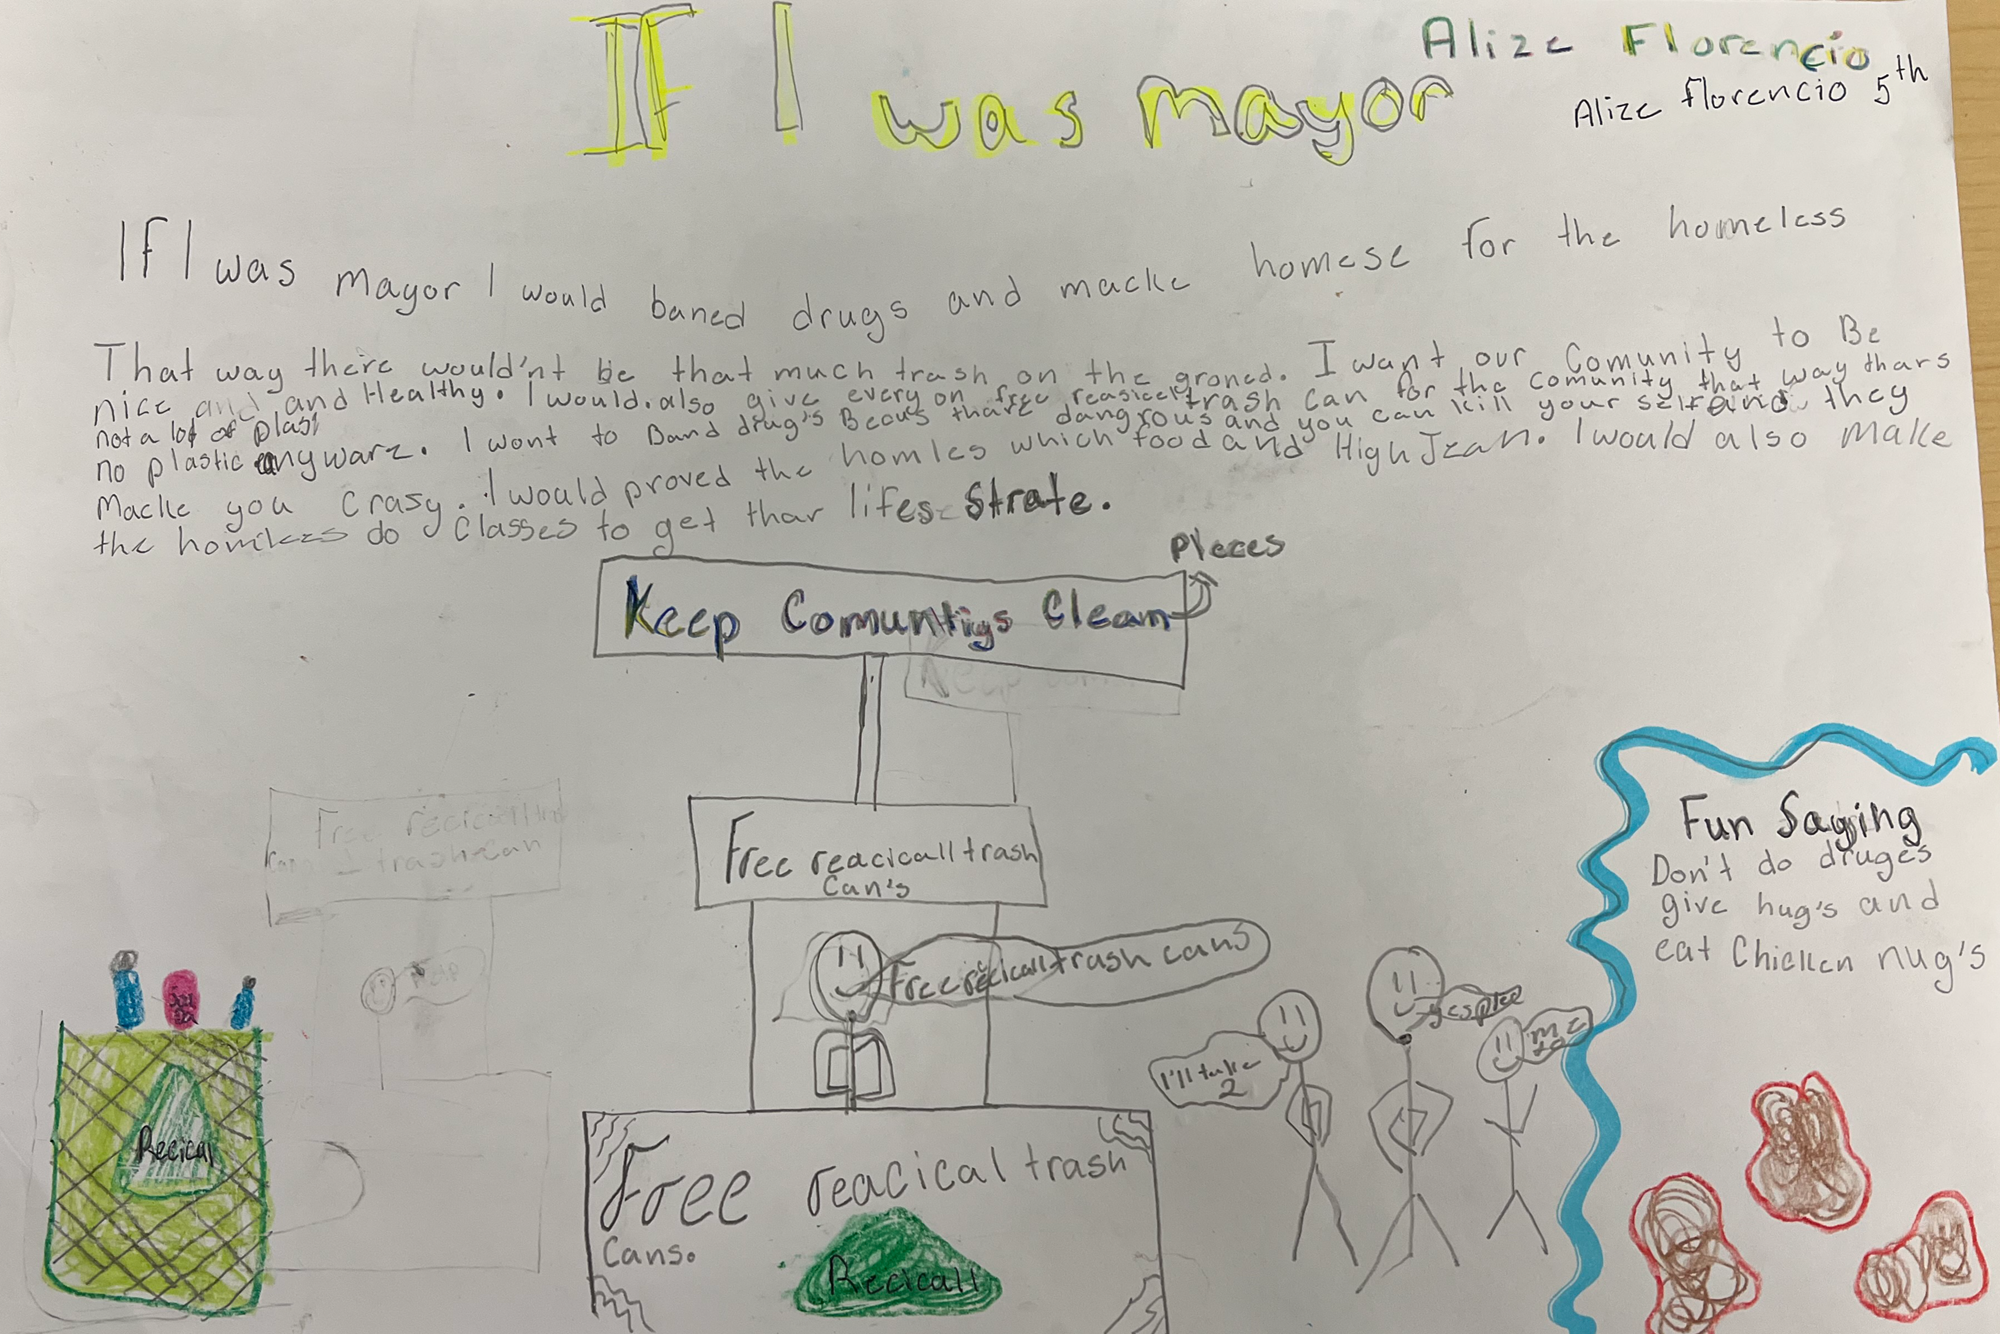 If I was mayor
Alize Florencio
Alize florencio 5th
If I was mayor I would baned drugs and macke homese for the homeless
That way there would'nt be that much trash on the groned. I want our Comunity to Be
nice and and Healthy. I would also give every on free reasicel trash can for the comunity that way thars
not a lot of plast
no plastic anyware. I wont to Band drug's Becous thare dangrous and you can kill your self and they
Macke you crasy. I would proved the homles which food and High Jean. I would also make
the homless do classes to get thar lifes strate.
Pleces
Keep Comuntiys Clean
Free reacicall trash
Can's
Free recicall trash cans
I'll take
2
yes plee
me
Free reacical trash
Cans.
Recicall
Recical
Free recicall
trash can
Fun Saying
Don't do druges
give hug's and
eat Chicken nug's